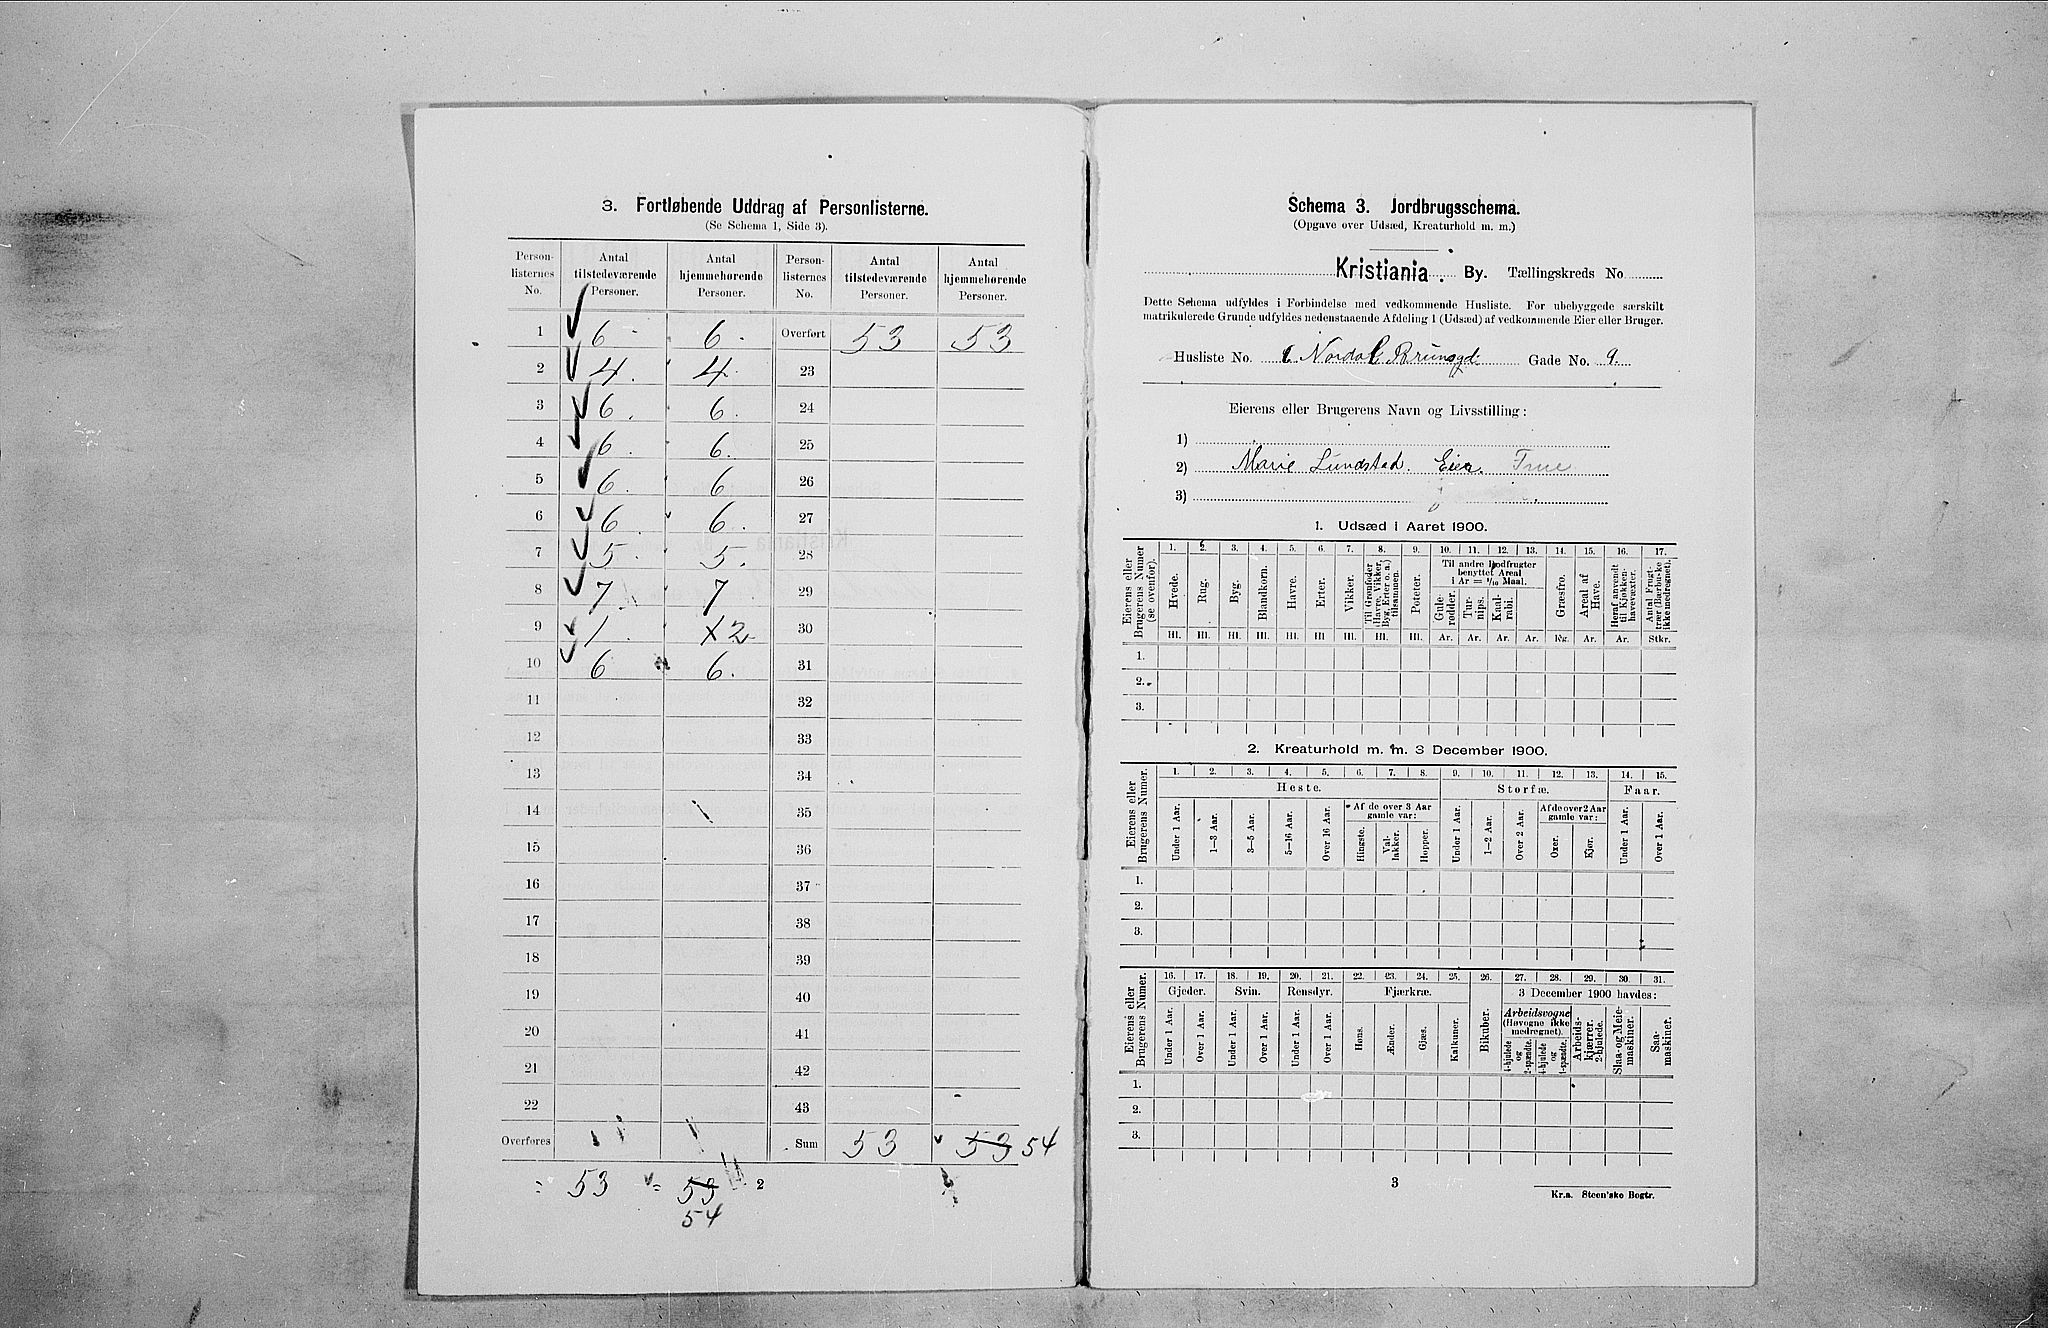 3. Fortløbende Uddrag af Personlisterne.
(Se Schema 1, Side 3).
Person-listernes No. | Antal tilstedeværende Personer. | Antal hjemmehørende Personer. | Person-listernes No. | Antal tilstedeværende Personer. | Antal hjemmehørende Personer.
1 6 6. Overført 53 53
2 4. 4. 23
3 6. 6. 24
4 6. 6. 25
5 6. 6 26
6 6 6. 27
7 5. 5. 28
8 7 7 29
9 1. 2 30
10 6 6. 31
11 32
12 33
13 34
14 35
15 36
16 37
17 38
18 39
19 40
20 41
21 42
22 43
Overføres Sum 53 53 54
= 53 = 53 2
54
Schema 3. Jordbrugsschema.
(Opgave over Udsæd, Kreaturhold m. m.)
Kristiania. By. Tællingskreds No
Dette Schema udfyldes i Forbindelse med vedkommende Husliste. For ubebyggede særskilt
matrikulerede Grunde udfyldes nedenstaaende Afdeling 1 (Udsæd) af vedkommende Eier eller Bruger.
Husliste No. Nordal Brunsgd Gade No. 9.
Eierens eller Brugerens Navn og Livsstilling:
1)
2) Marie Lundstad. Eier. Frue
3)
1. Udsæd i Aaret 1900.
Eierens eller Brugerens Numer (se ovenfor).
1. 2. 3. 4. 5. 6. 7. 8. 9. 10. 11. 12. 13. 14. 15. 16. 17.
Hvede. Rug. Byg. Blandkorn. Havre. Erter. Vikker. Til Grønfoder (Havre, Vikker, Byg, Erter o. a.) tilsammen. Poteter.
Til andre Rodfrugter benyttet Areal i Ar = 1/10 Maal.
Gule-rødder. Tur-nips. Kaal-rabi.
Græsfrø. Areal af Have. Heraf anvendt til Kjøkken-havevæxter. Antal Frugt-trær (Bærbuske ikke medregnet).
Hl. Hl. Hl. Hl. Hl. Hl. Hl. Hl. Hl. Ar. Ar. Ar. Ar. Kg. Ar. Ar. Stkr.
1.
2.
3.
2. Kreaturhold m. m. 3 December 1900.
Eierens eller Brugerens Numer.
1. 2. 3. 4. 5. 6. 7. 8. 9. 10. 11. 12. 13. 14. 15.
Heste. Storfæ. Faar.
Under 1 Aar. 1—3 Aar. 3—5 Aar. 5—16 Aar. Over 16 Aar.
Af de over 3 Aar gamle var:
Hingste. Val-lakker. Hopper.
Under 1 Aar. 1—2 Aar. Over 2 Aar.
Af de over 2 Aar gamle var:
Oxer. Kjør.
Under 1 Aar. Over 1 Aar.
1.
2.
3.
Eierens eller Brugerens Numer.
16. 17. 18. 19. 20. 21. 22. 23. 24. 25. 26. 27. 28. 29. 30. 31.
Gjeder. Svin. Rensdyr. Fjærkræ. Bikuber. 3 December 1900 havdes:
Under 1 Aar. Over 1 Aar. Under 1 Aar. Over 1 Aar. Under 1 Aar. Over 1 Aar. Høns. Ænder. Gjæs. Kalkuner.
Arbeidsvogne (Høvogne ikke medregnet).
4-hjulede og 2-spændte. 4-hjulede og 1-spændte.
Arbeids-kjærrer. 2-hjulede. Slaa- og Meie-maskiner. Saa-maskiner.
1.
2.
3.
3
Kr.a. Steen'ske Bogtr.